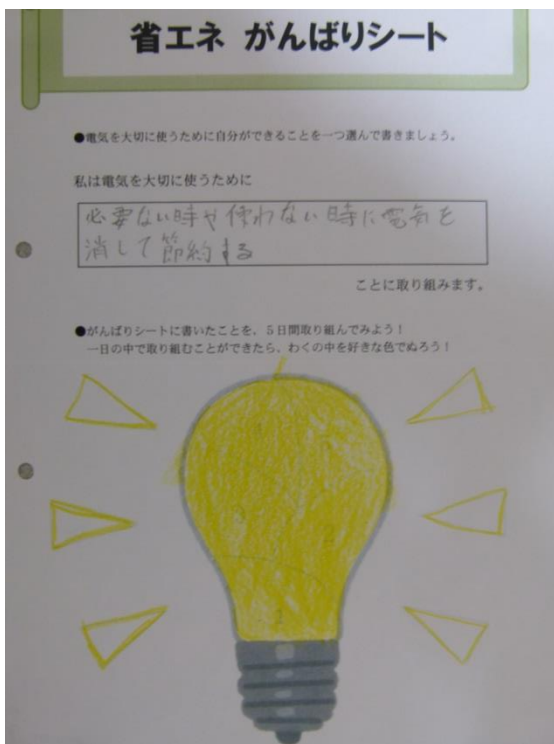 省エネ がんばりシート
●電気を大切に使うために自分ができることを一つ選んで書きましょう。
私は電気を大切に使うために
必要ない時や使わない時に電気を
消して節約する
ことに取り組みます。
●がんばりシートに書いたことを、５日間取り組んでみよう！
一日の中で取り組むことができたら、わくの中を好きな色でぬろう！